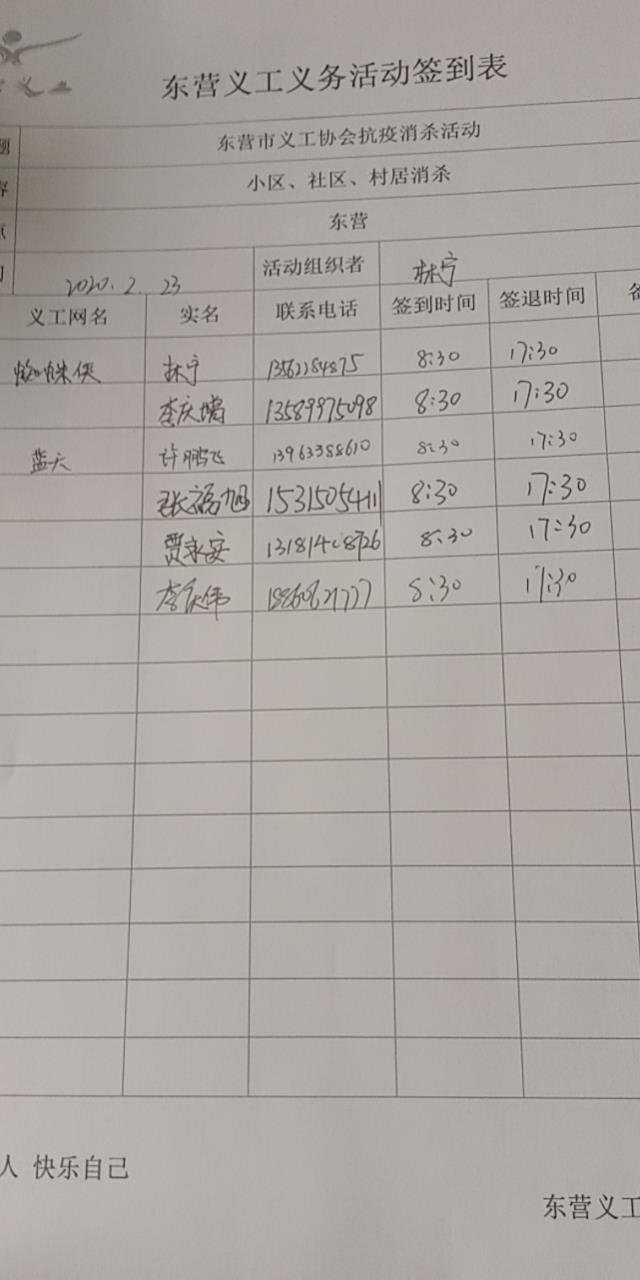 东营义工义务活动签到表
题 东营市义工协会抗疫消杀活动
容 小区、社区、村居消杀
点 东营
2020.2.23 活动组织者 林宁
义工网名 实名 联系电话 签到时间 签退时间 备
蜘蛛侠 林宁 8:30 17:30
李庆瑞 13589975098 8:30 17:30
蓝天 许鹏飞 13963388610 8:30 17:30
张福旭 15315054111 8:30 17:30
贾永安 13181408726 8:30 17:30
李庆伟 8:30 17:30
人 快乐自己
东营义工